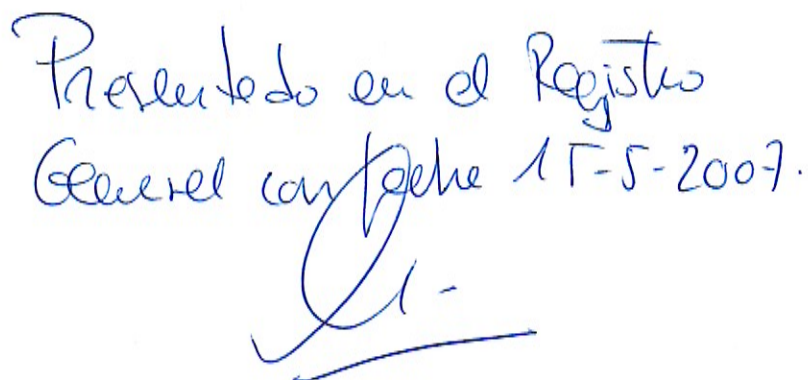 Presentado en el Registro
General con fecha 15-5-2007.